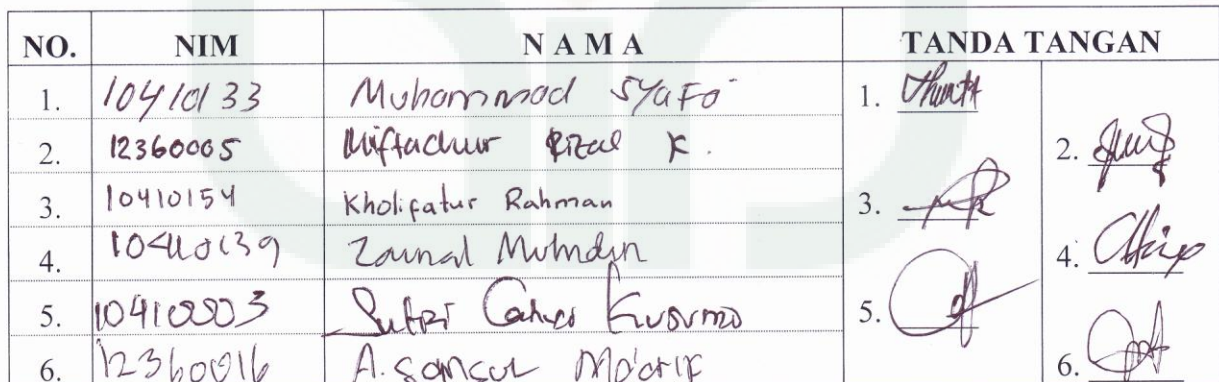 NO. NIM N A M A TANDA TANGAN
1. 10410133 Muhammad Syafo 1.
2. 12360005 Miftachur Rizal K. 2.
3. 10410154 Kholifatur Rahman 3.
4. 10410139 Zainal Muhndin 4.
5. 10410003 Cahyo Kusumo 5.
6. 12360016 A. Samsul Ma'arif 6.